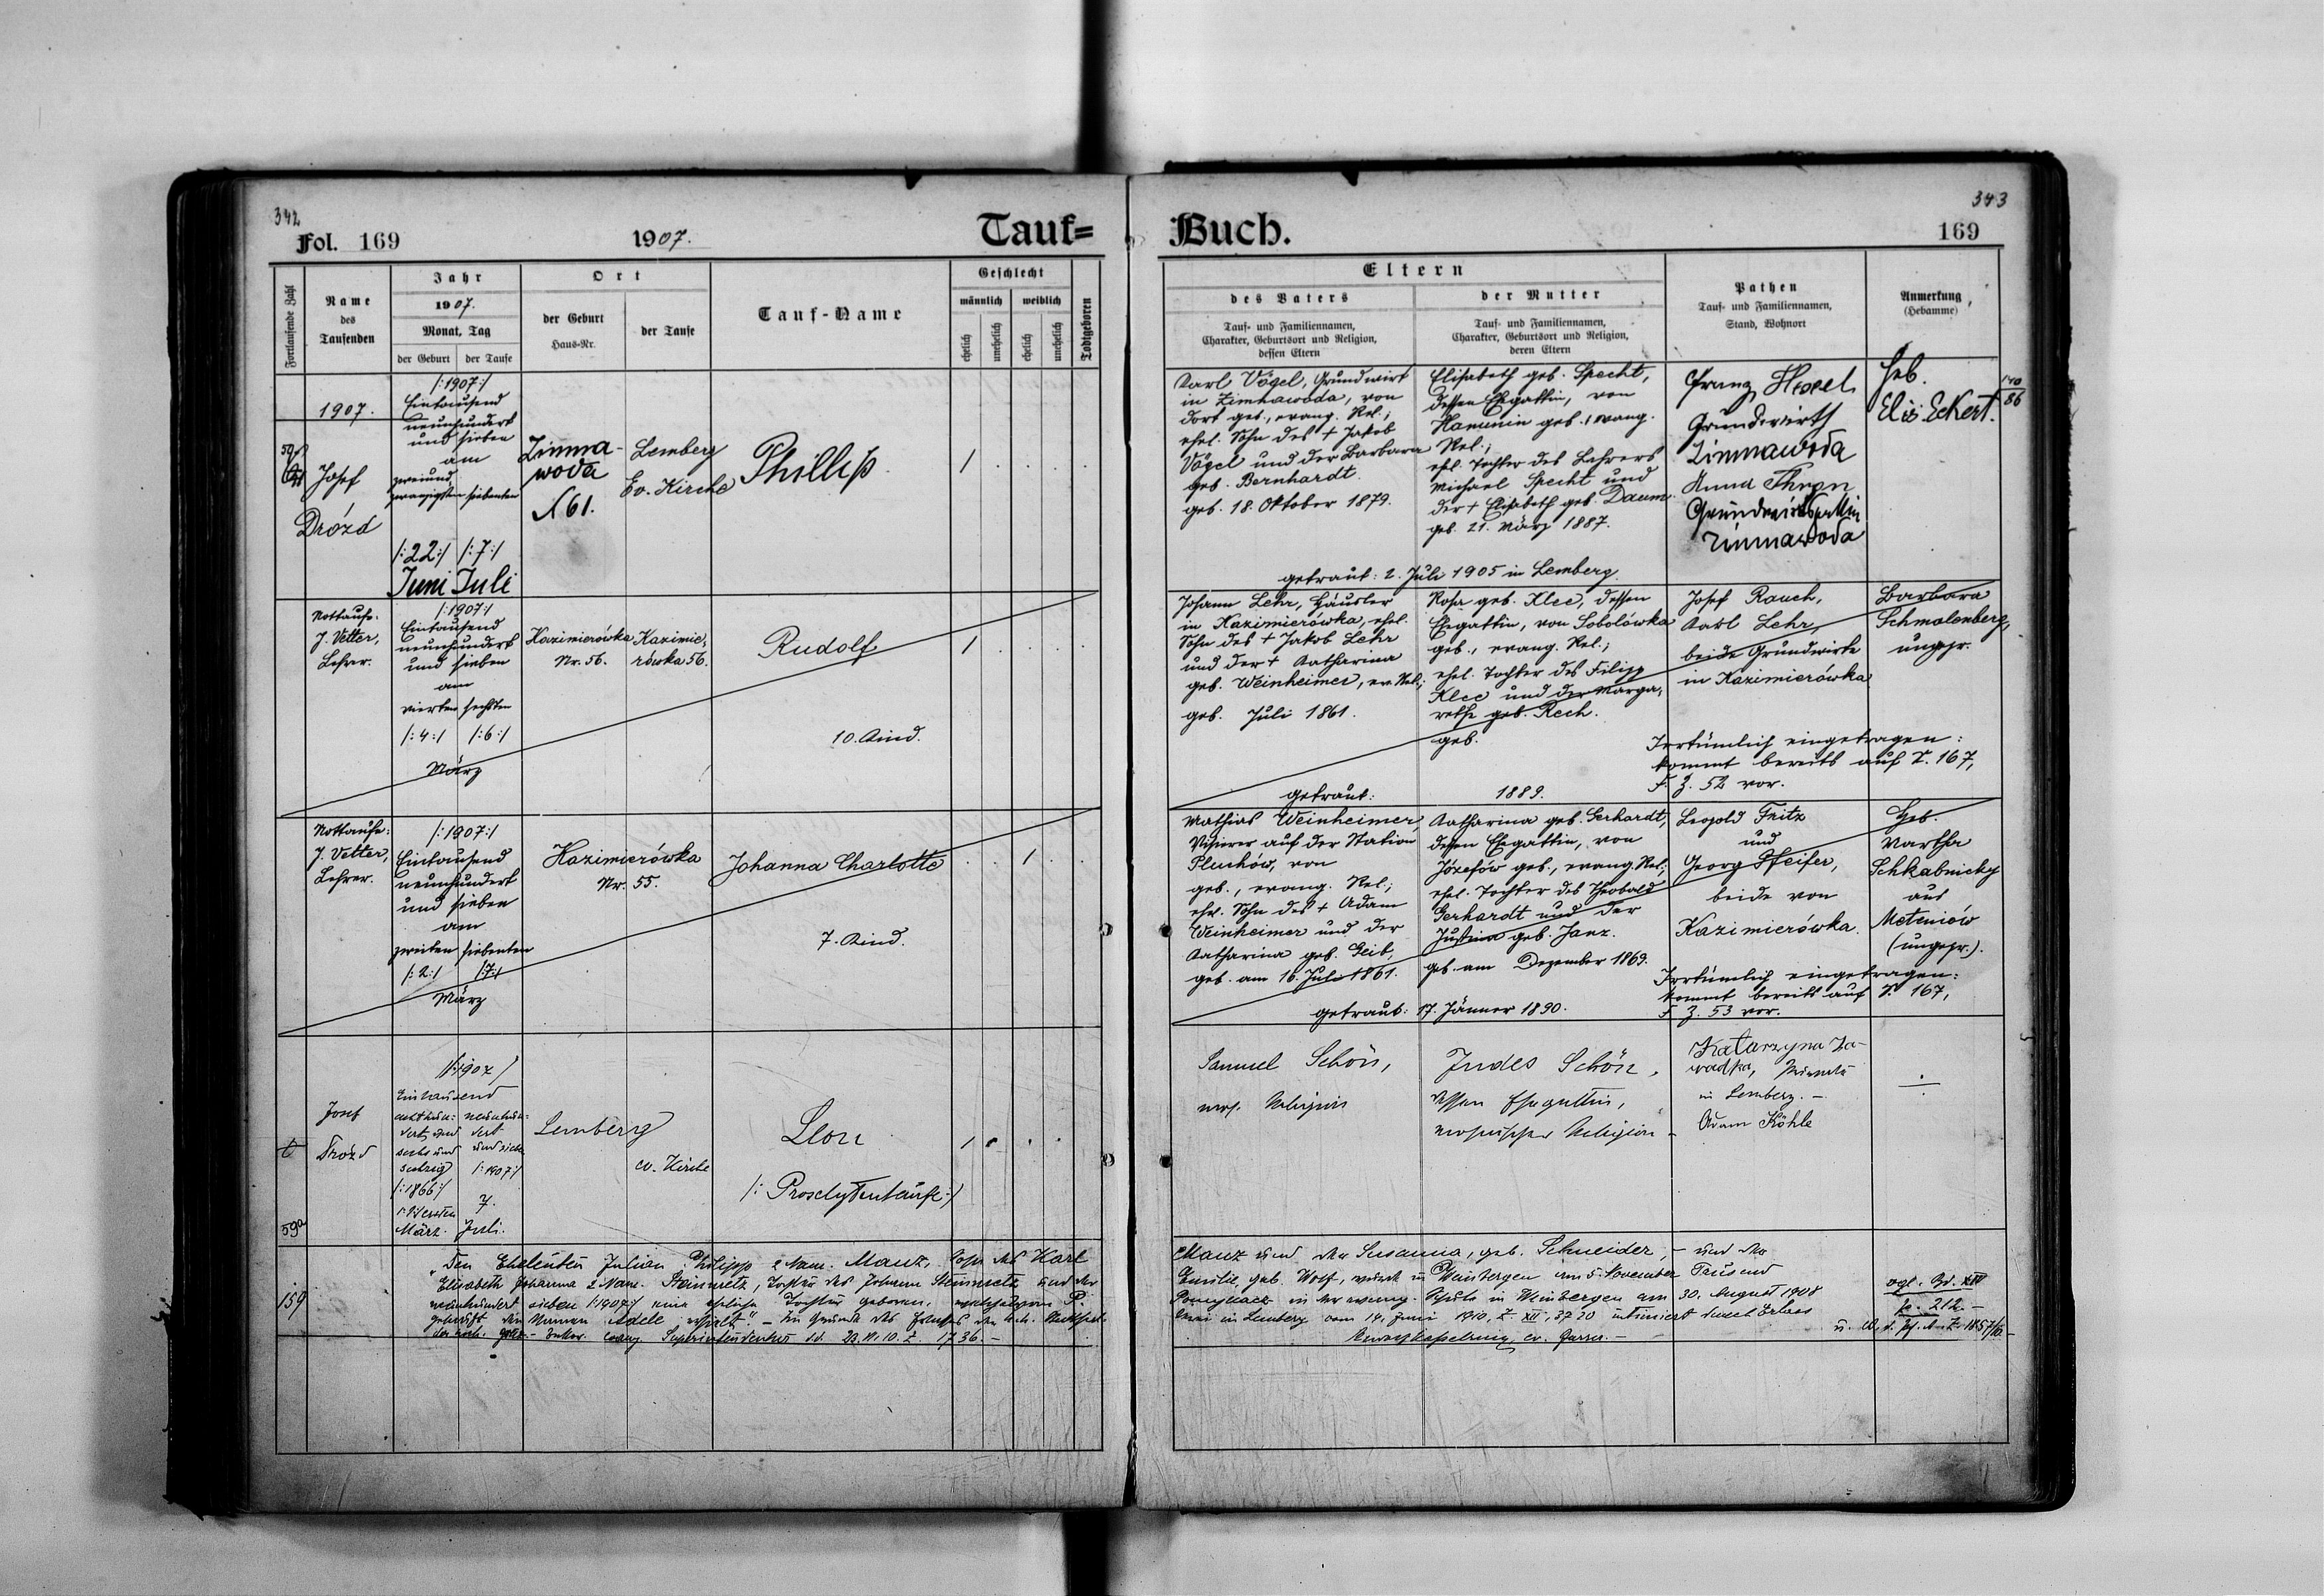 342
Fol. 169
1907.
Tauf=
Fortlaufende Zahl
Name
des
Taufenden
Jahr
1907.
Monat, Tag
der Geburt
der Taufe
Ort
der Geburt
Haus-Nr.
der Taufe
Tauf-Name
Geschlecht
männlich
weiblich
ehelich
unehelich
ehelich
unehelich
Todtgeboren
1907.
Josef
Drózd
/:1907:/
Eintausend
neunhundert
und sieben
am
zweiund
zwanzigsten siebenten
/:22:/ /:7:/
Juni Juli
Zimma-
woda
N 61.
Lemberg
Ev. Kirche
Phillip
1
Nottaufe:
J. Vetter,
Lehrer.
/:1907:/
Eintausend
neunhundert
und sieben
am
vierten sechsten
/:4:/ /:6:/
März
Kazimierówka
Nr. 56.
Kazimie-
rówka 56.
Rudolf
10. Kind.
1
Nottaufe:
J. Vetter,
Lehrer.
/:1907:/
Eintausend
neunhundert
und sieben
am
zweiten siebenten
/:2:/ /:7:/
März
Kazimierówka
Nr. 55.
Johanna Charlotte
7. Kind.
1
59a
Josef
Drózd
/:1907/
Eintausend
achthun- neunhun-
dert und dert
sechs und und sieben
sechzig /:1907:/
/:1866:/ 7.
März. Juli.
Lemberg
ev. Kirche
Leon
/: Proselytentaufe :/
1
159
"Den Eheleuten Julian Philipp 2 Nam. Manz, Sohn des Karl
Elisabeth Johanna 2 Nam. Steinmetz, Tochter des Johann Steinmetz und der
neunhundert sieben /:1907:/ eine eheliche Tochter geboren,
getauft den Namen Adele erhielt." - Im Grunde des
evang. Superintendentur dd. 23. VI. 10. Z. 1736. -
343
Buch.
169
Eltern
des Vaters
Tauf- und Familiennamen,
Charakter, Geburtsort und Religion,
dessen Eltern
der Mutter
Tauf- und Familiennamen,
Charakter, Geburtsort und Religion,
deren Eltern
Pathen
Tauf- und Familiennamen,
Stand, Wohnort
Anmerkung
(Hebamme)
Karl Vögel, Grundwirt
in Zimnawoda, von
dort geb., evang. Rel.;
ehel. Sohn des + Jakob
Vögel und der Barbara
geb. Bernhardt.
geb. 18. Oktober 1879.
Elisabeth geb. Specht,
dessen Ehegattin, von
Hanunin geb., evang.
Rel.;
ehel. Tochter des Lehrers
Michael Specht und
der + Elisabeth geb. Daum.
geb. 21. März 1887.
getraut: 2. Juli 1905 in Lemberg.
Franz
Grundwirth
Zimnawoda
Anna
Grundwirthsgattin
Zimnawoda
Heb.
Elis. Eckert.
140
86
Johann Lehr, Häusler
in Kazimierówka, ehel.
Sohn des + Jakob Lehr
und der + Katharina
geb. Weinheimer, ev. Rel.;
geb. Juli 1861.
Rosa geb. Klee, dessen
Ehegattin, von Sobolówka
geb., evang. Rel.;
ehel. Tochter des Filipp
Klee und der Marga-
rethe geb. Rech.
geb.
getraut: 1889.
Josef Rauch,
Karl Lehr,
beide Grundwirte
in Kazimierówka
Barbara
Schmalenberg,
ungepr.
Irrtümlich eingetragen:
kommt bereits auf S. 167,
F. Z. 52 vor.
Mathias Weinheimer,
auf der Station
Pluchów, von
geb., evang. Rel.;
ehel. Sohn des + Adam
Weinheimer und der
Katharina geb. Geib,
geb. am 16. Juli 1861.
Katharina geb. Gerhardt,
dessen Ehegattin, von
Józefów geb., evang. Rel.;
ehel. Tochter des Theobald
Gerhardt und der
Justina geb. Janz.
geb. am Dezember 1869.
getraut: 17. Jänner 1890.
Leopold Fritz
und
Georg Pfeifer,
beide von
Kazimierówka.
Geb.
Martha
Schkabnicky
aus
Meteniów
(ungepr.).
Irrtümlich eingetragen:
kommt bereits auf S. 167,
F. Z. 53 vor.
Samuel Schön,
mos. Religion
Judes Schön,
dessen Ehegattin,
mosaischer Religion -
Katarzyna Za-
wadka,
in Lemberg. -
Adam Köhle
Manz und der Susanna, geb. Schneider, - und der
Emilie, geb. Wolf, wurde in Weinbergen am 5. November Tausend
in der evang. Schule in Weinbergen am 30. August 1908
in Lemberg vom 14. Juni 1910, Z. XII, 3720 intimiert durch Erlass
ev. Pfarrer. -
vgl. Bd. XIV
fo. 212. -